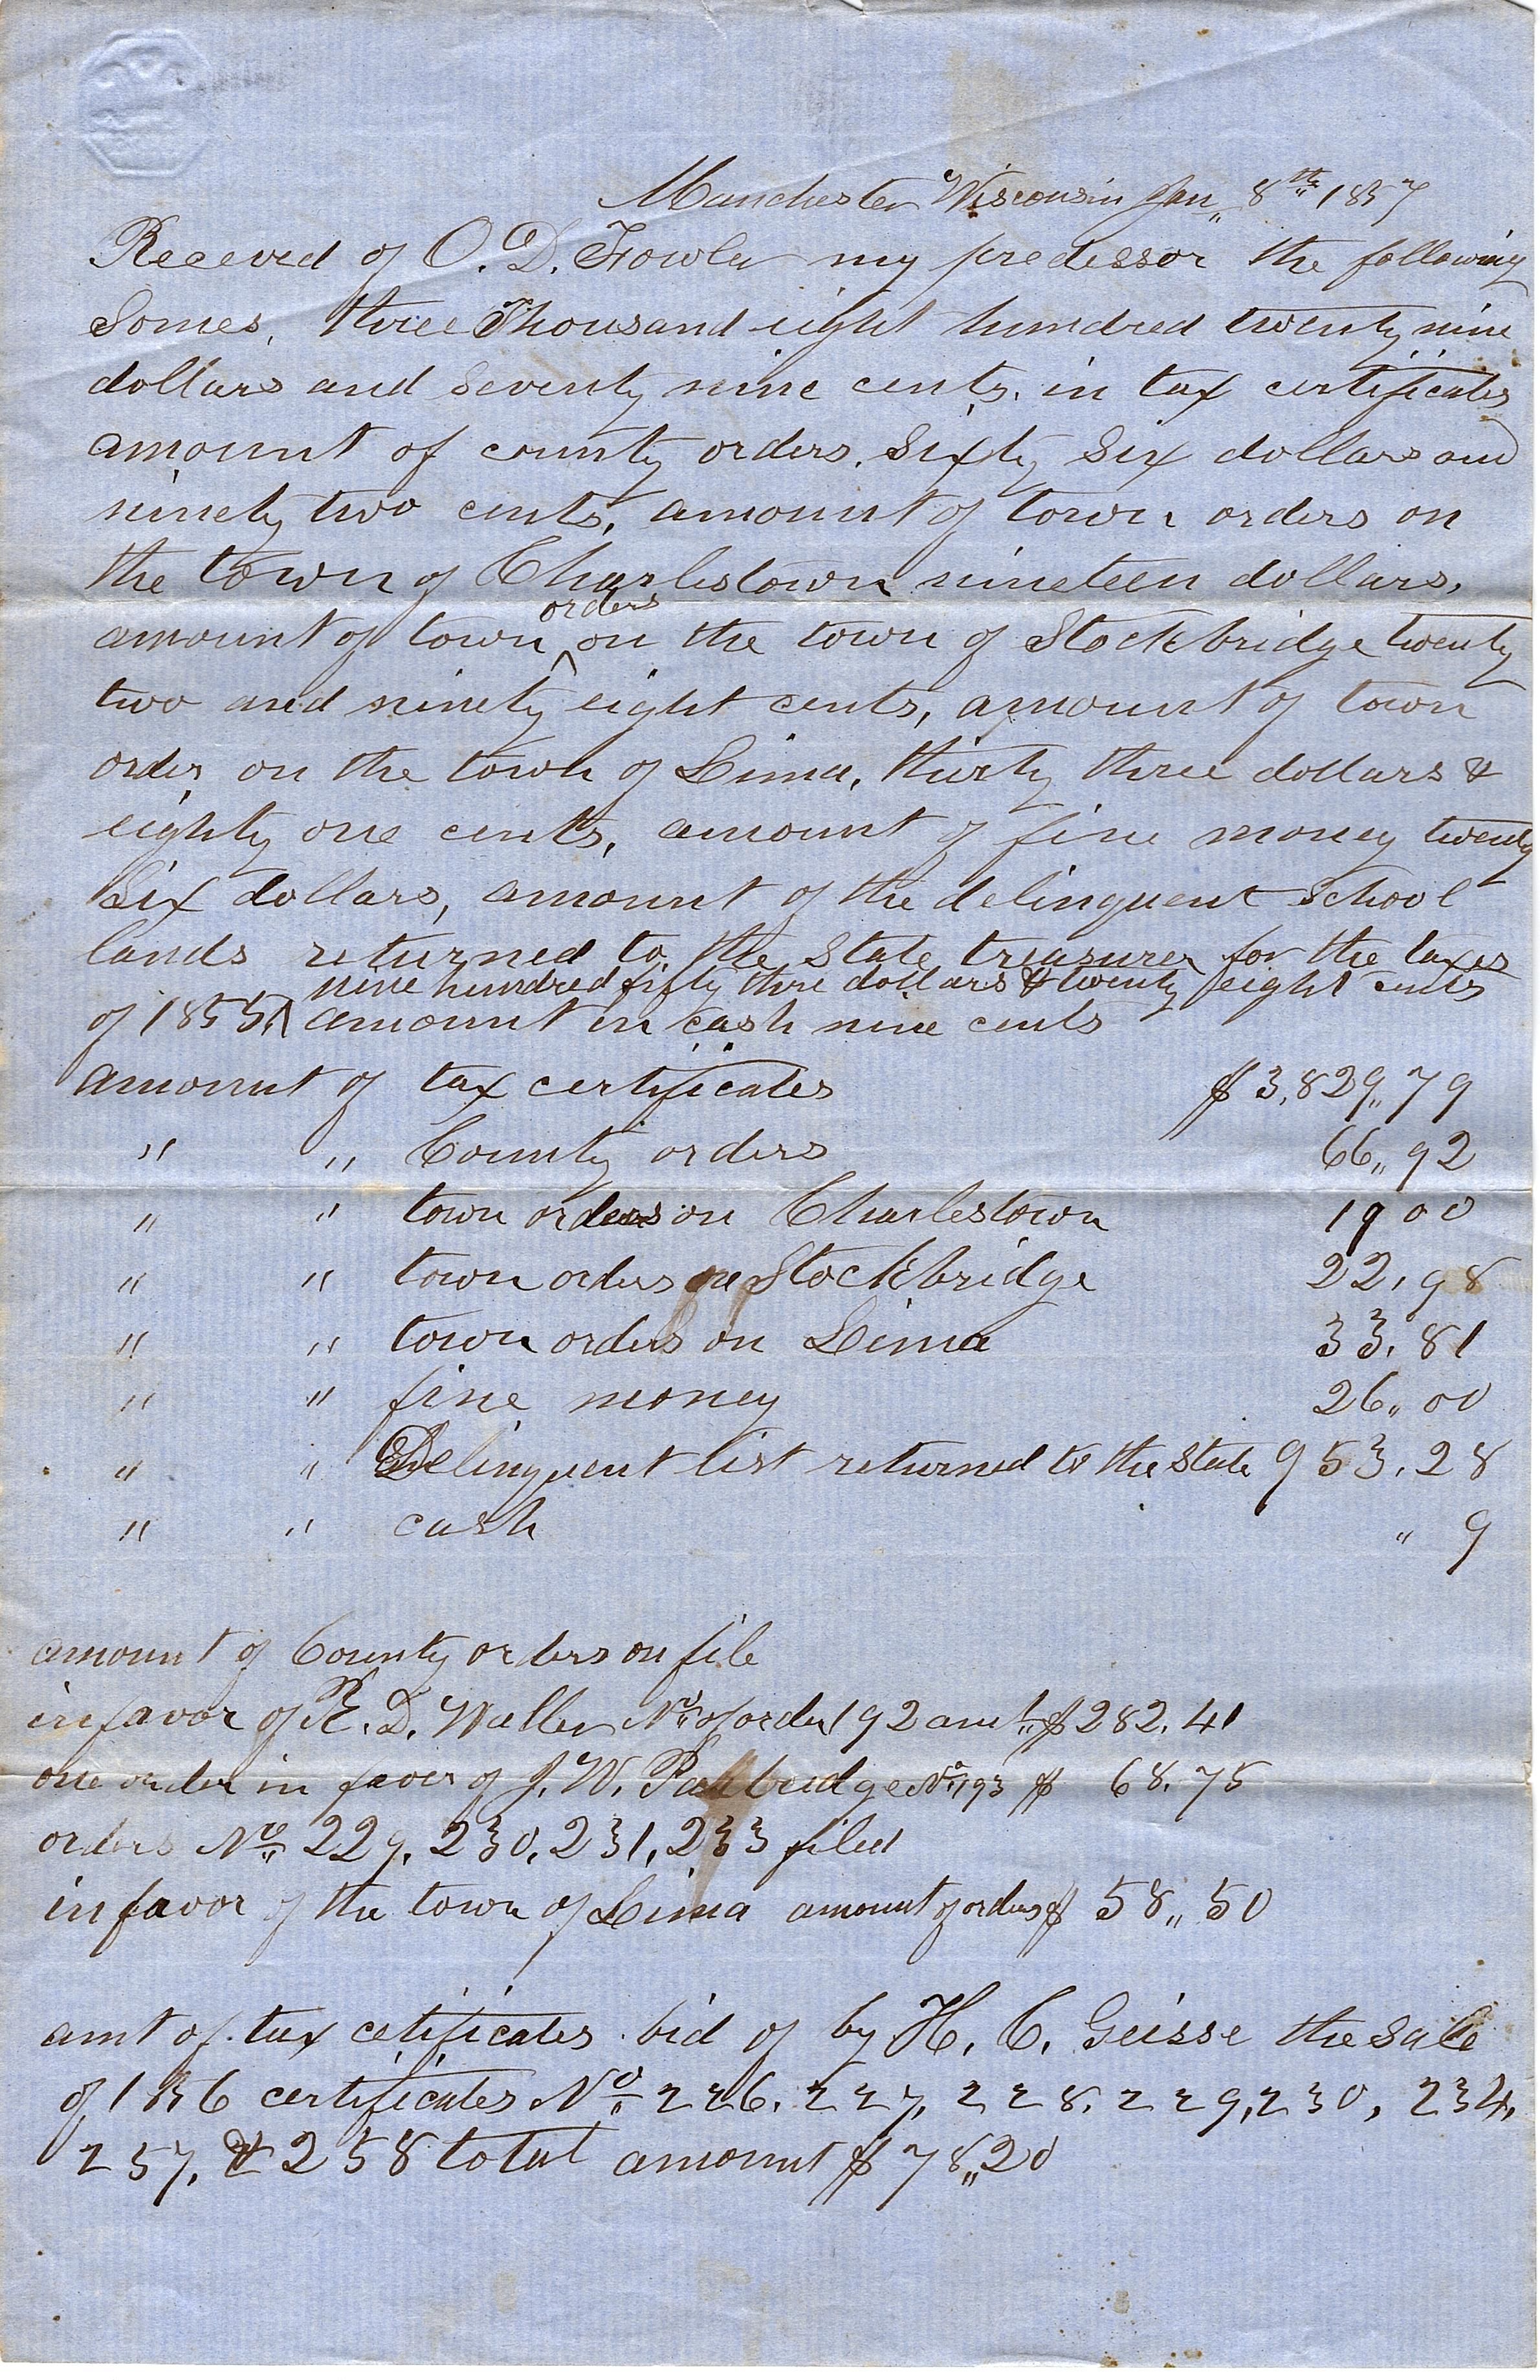 Manchester Wisconsin Jan 8th 1857
Receved of O. D. Fowler my predessor the following
Somes, three Thousand eight hundred twenty nine
dollars and seventy nine cents, in tax certificates
amount of county orders, Sixty Six dollars and
ninety two cents, amount of town orders on
the town of Charlestown nineteen dollars,
orders
amount of town ^ on the town of Stockbridge twenty
two and ninety eight cents, amount of town
order on the town of Lima, thirty three dollars &
eighty one cents, amount of fine money twenty
Six dollars, amount of the delinquent School
lands returned to the State treasurer for the taxes
nine hundred fifty three dollars & twenty eight cents
of 1855, ^ amount in cash nine cents
amount of tax certificates $3,829,,79
" " County orders 66,,92
" " town orders on Charlestown 19 00
" " town orders on Stockbridge 22,98
" " town orders on Lima 33,81
" " fine money 26,,00
" " Delinquent list returned to the State 953,28
" " cash " 9
amount of County orders on file
in favor of R. D. Waller No of order 192 amt $282,41
one order in faver of J. W. Partridge No 193 $ 68.75
orders No 229, 230, 231, 233 filed
in favor of the town of Lima amount of orders $ 58,,50
amt of tax cetificates bid of by H. C. Geisse the sale
of 1856 certificates No 226, 227, 228, 229, 230, 234,
257, & 258 total amount $78,,20